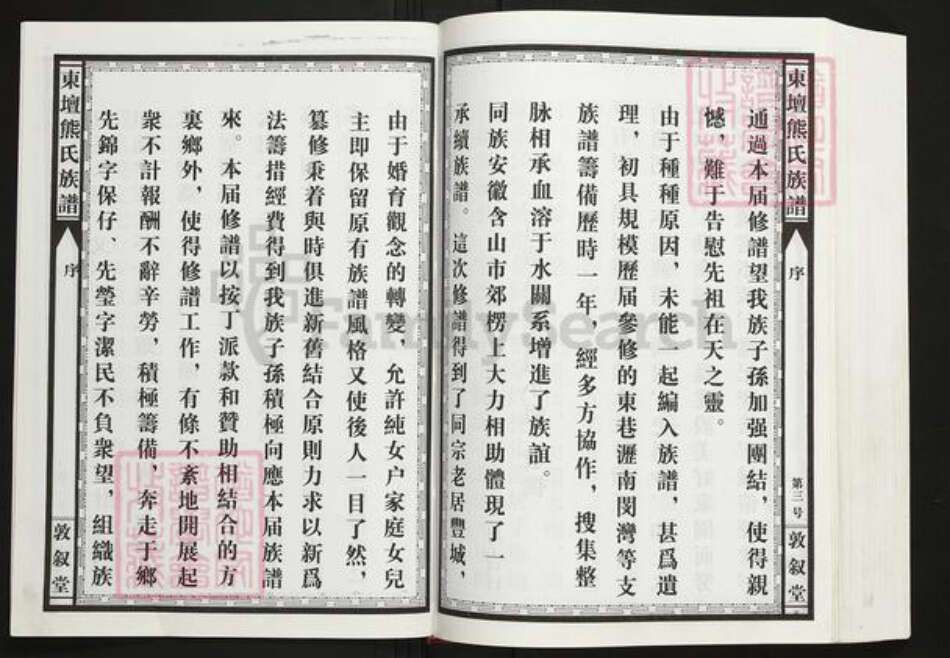 東壇熊氏族譜
序
第三号
敦叙堂
通過本届修譜望我族子孫加强團結，使得親
憾，難于告慰先祖在天之靈。
由于種種原因，未能一起編入族譜，甚爲遺
理，初具規模歷届參修的東巷瀝南閔灣等支
族譜籌備歷時一年，經多方協作，搜集整
脉相承血溶于水關系增進了族誼。
同族安徽含山市郊楞上大力相助體現了一
承續族譜。這次修譜得到了同宗老居豐城，
由于婚育觀念的轉變，允許純女户家庭女兒
主即保留原有族譜風格又使後人一目了然，
篡修秉着與時俱進新舊結合原則力求以新爲
法籌措經費得到我族子子孫積極向應本届族譜
來。本届修譜以按丁派款和贊助相結合的方
裏鄉外，使得修譜工作，有條不紊地開展起
衆不計報酬不辭辛勞，積極籌備，奔走于鄉
先錦字保仔、先瑩字潔民不負衆望，組織族
東壇熊氏族譜
序
敦叙堂
FamilySearch